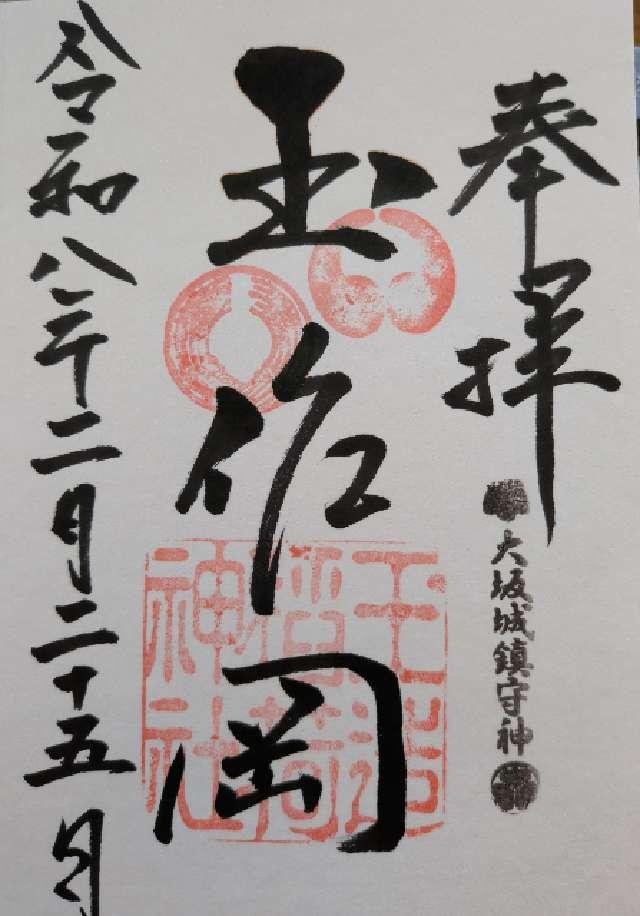 奉拝
大坂城鎮守神
玉作岡
玉造
稲荷
神社
令和八年二月二十五日